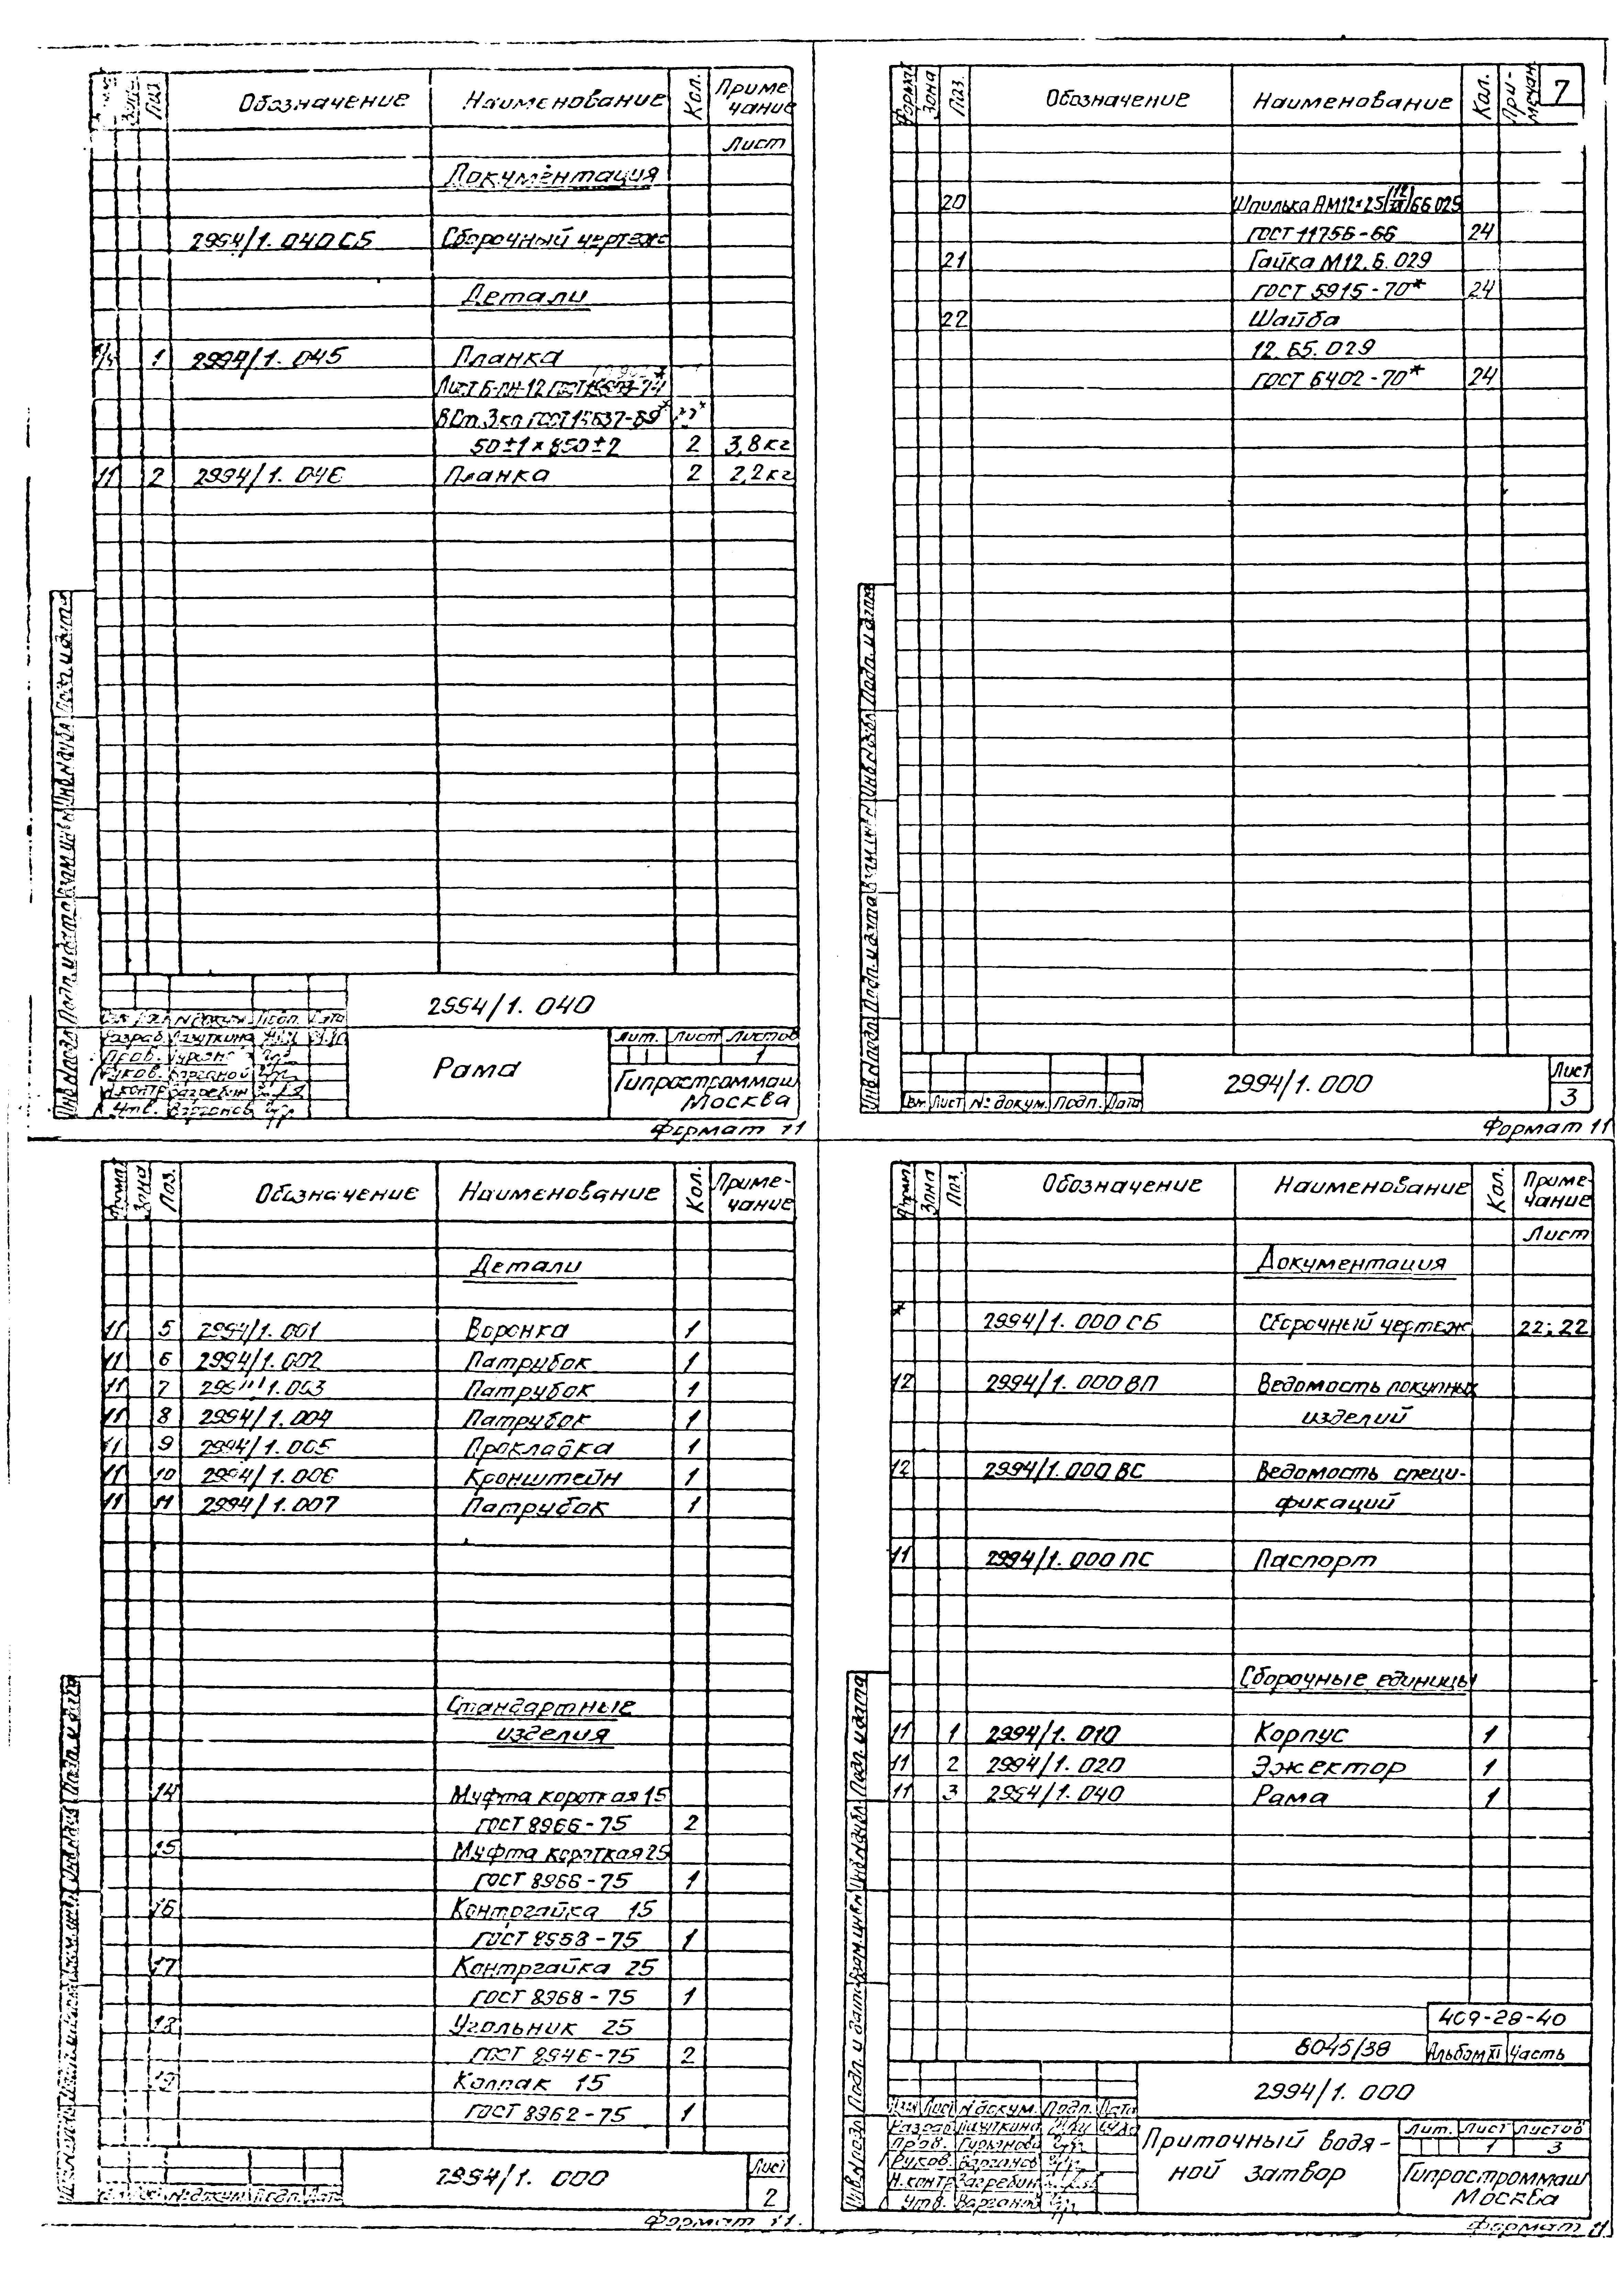 Поз. Обозначение Наименование Кол. Приме
чание
Лист
Документация
2994/1. 040 СБ Сборочный чертеж
Детали
1 2994/1. 045 Планка
50±1×850±2 2 3,8 кг
11 2 2994/1. 046 Планка 2 2,2 кг
2994/1. 040
Лит. Лист Листов
1
Рама
Гипростроммаш
Москва
Формат 11
Формат Зона Поз. Обозначение Наименование Кол. При-
мечан. 7
20 Шпилька АМ12×25
ГОСТ 11756-66 24
21 Гайка М12.6.029
ГОСТ 5915-70* 24
22 Шайба
12.65.029
ГОСТ 6402-70* 24
Инв № подл. Подп. и дата Взам. инв № Инв № дубл. Подп. и дата
2994/1.000
Изм Лист № докум. Подп. Дата
Лист
3
Формат 11
Формат Зона Поз. Обозначение Наименование Кол. Приме-
чание
Детали
11 5 2994/1.001 Воронка 1
11 6 2994/1.002 Патрубок 1
11 7 2994/1.003 Патрубок 1
11 8 2994/1.004 Патрубок 1
11 9 2994/1.005 Прокладка 1
11 10 2994/1.006 Кронштейн 1
11 11 2994/1.007 Патрубок 1
Стандартные
изделия
14 Муфта короткая 15
ГОСТ 8966-75 2
15 Муфта короткая 25
ГОСТ 8966-75 1
16 Контргайка 15
ГОСТ 8968-75 1
17 Контргайка 25
ГОСТ 8968-75 1
18 Угольник 25
ГОСТ 8946-75 2
19 Колпак 15
ГОСТ 8962-75 1
2994/1. 000
Лист
2
Формат 11.
Формат Зона Поз. Обозначение Наименование Кол. Приме-
чание
Лист
Документация
* 2994/1. 000 СБ Сборочный чертеж 22; 22
12 2994/1. 000 ВП Ведомость покупных
изделий
12 2994/1. 000 ВС Ведомость специ-
фикаций
11 2994/1. 000 ПС Паспорт
Сборочные единицы
11 1 2994/1. 010 Корпус 1
11 2 2994/1. 020 Эжектор 1
11 3 2994/1. 040 Рама 1
409-28-40
6045/38 Альбом XI Часть
2994/1. 000
Изм Лист № докум. Подп. Дата
Приточный водя-
ной затвор
Лит. Лист Листов
1 3
Гипростроммаш
Москва
Формат 11